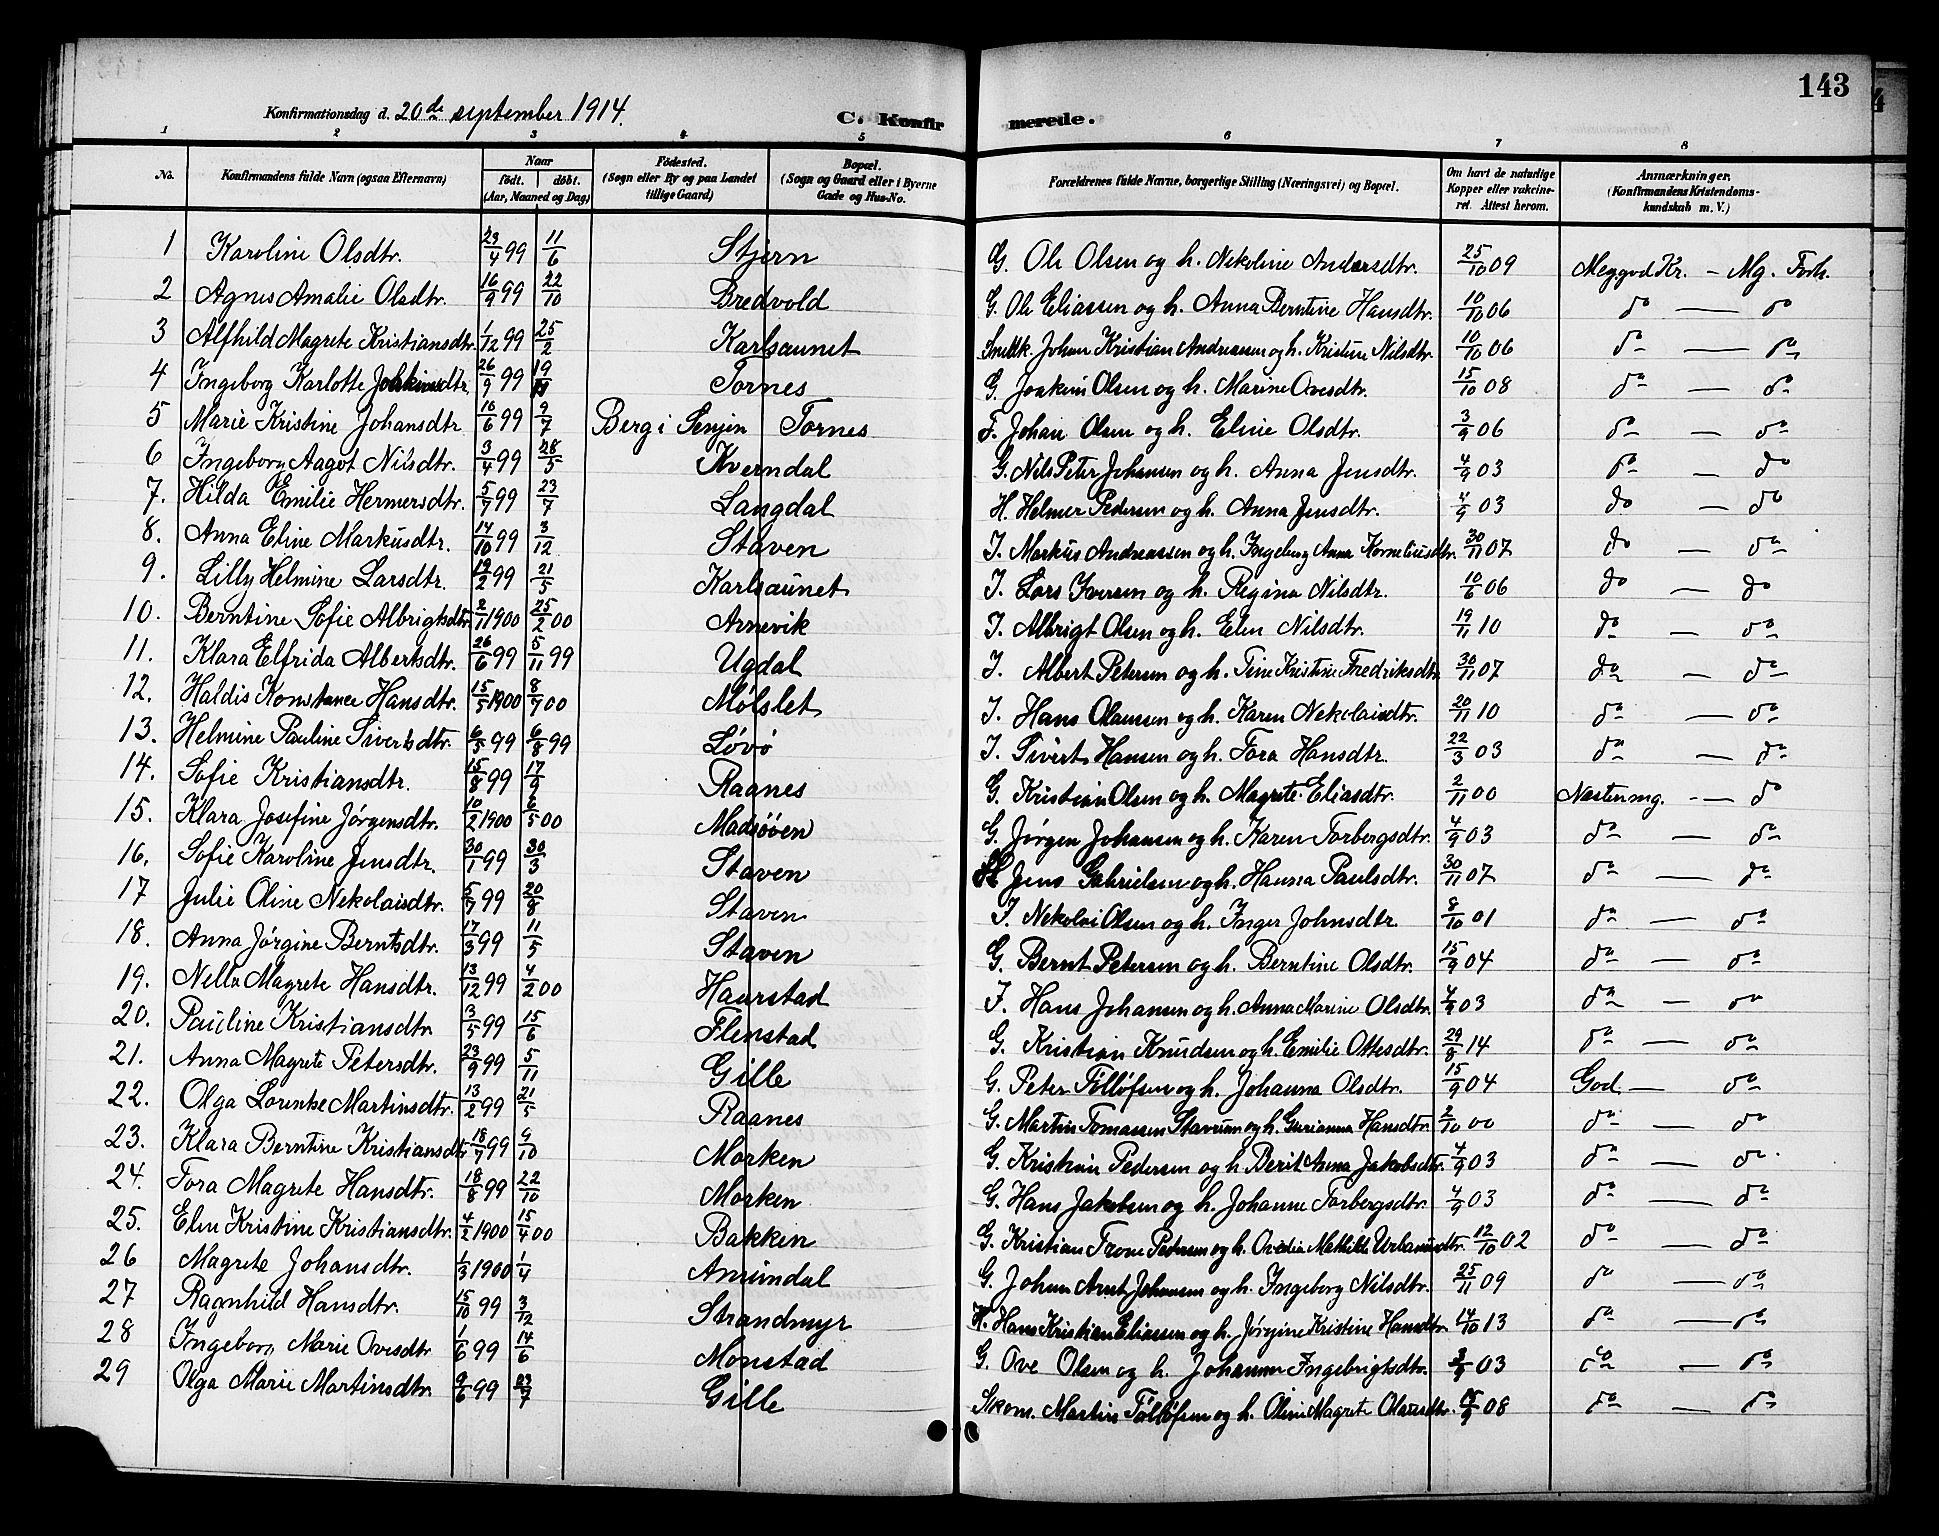 143
Konfirmationsdag d. 20de september 1914.
C. Konfirmerede.
1 2 3 4 5 6 7 8
No. Konfirmandens fulde Navn (ogsaa Efternavn) Naar født. døbt. (Aar, Maaned og Dag) Fødested. (Sogn eller By og paa Landet tillige Gaard) Bopæl. (Sogn og Gaard eller i Byerne Gade og Hus-No. Forældrenes fulde Navne, borgerlige Stilling (Næringsvei) og Bopæl. Om havt de naturlige Kopper eller vakcineret. Attest herom. Anmærkninger. (Konfirmandens Kristendomskundskab m. V.)
1 Karoline Olsdtr. 23/4 99 11/6 Stjern G. Ole Olsen og h. Nekoline Andersdtr. 25/10 09 Meg god Kr. - Mg. Forh.
2 Agnes Amalie Olsdtr. 16/9 99 22/10 Bredvold G. Ole Eliassen og h. Anna Berntine Hansdtr. 10/10 06 do — do
3 Alfhild Magrete Kristiansdtr. 1/12 99 25/2 Karlsaunet Snekk. Johan Kristian Andreassen og h. Kristine Nilsdtr. 10/10 06 do — do
4 Ingeborg Karlotte Joakimsdtr. 26/9 99 19 Tornes G. Joakim Olsen og h. Marine Ovesdtr. 15/10 08 do — do
5 Marie Kristine Johansdtr 16/6 99 9/7 Berg i Senjen Tornes F. Johan Olsen og h. Eline Olsdtr. 3/9 06 do — do
6 Ingeborg Aagot Nilsdtr. 3/4 99 28/5 Kverndal G. Nils Peter Johansen og h. Anna Jensdtr. 4/9 03 do — do
7. Hilda Emilie Hermersdtr. 5/7 99 23/7 Langdal H. Helmer Pedersen og h. Anna Jensdtr. 4/9 03 do — do
8. Anna Eline Markusdtr. 14/10 99 3/12 Staven I. Markus Andreassen og h. Ingeborg Anna Korneliusdtr. 30/11 07 do — do
9. Lilly Helmine Larsdtr. 19/2 99 21/5 Karlsaunet I. Lars Iversen og h. Regina Nilsdtr. 10/6 06 do — do
10. Berntine Sofie Albrigtsdtr. 2/1 1900 25/2 00 Arnevik I. Albrigt Olsen og h. Elen Nilsdtr. 19/11 10 do — do
11. Klara Elfrida Albertsdtr. 26/6 99 5/11 99 Ugdal I. Albert Petersen og h. Tine Kristine Fredriksdtr. 30/11 07 do — do
12. Haldis Konstance Hansdtr. 15/5 1900 8/7 00 Mølslet I. Hans Olaussen og h. Karen Nekolaisdtr. 20/11 10 do — do
13. Helmine Pauline Sivertsdtr. 6/5 99 6/8 99 Løvø I. Sivert Hansen og h. Tora Hansdtr. 22/3 03 do — do
14. Sofie Kristiansdtr. 15/8 99 17/9 Raanes G. Kristian Olsen og h. Magrete Eliasdtr. 2/11 00 Næsten mg. - — do
15. Klara Josefine Jørgensdtr. 10/2 1900 6/5 00 Madsøøen G. Jørgen Johansen og h. Karen Torbergsdtr. 4/9 03 do — do
16. Sofie Karoline Jensdtr. 30/1 99 30/3 Staven Jens Gabrielsen og h. Hanna Paulsdtr. 30/11 07 do — do
17 Julie Oline Nekolaisdtr. 5/7 99 20/8 Staven I. Nekolai Olsen og h. Inger Johnsdtr. 8/10 01 do — do
18. Anna Jørgine Berntsdtr. 17/3 99 11/5 Staven G. Bernt Petersen og h. Berntine Olsdtr. 15/9 04 do — do
19. Nella Magrete Hansdtr. 13/12 99 4/2 00 Haarstad F. Hans Johansen og h. Anna Marine Olsdtr. 4/9 03 do — do
20. Pauline Kristiansdtr 3/5 99 15/6 Flenstad G. Kristian Knudsen og h. Emilie Ottesdtr. 29/8 14 do — do
21. Anna Magrete Petersdtr. 23/9 99 5/11 Gille G. Peter Tølløfsen og h. Johanna Olsdtr. 15/9 04 God — do
22. Olga Lorentse Martinsdtr. 13/2 99 21/5 Raanes G. Martin Tomassen Stavrum og h. Gurianna Hansdtr. 2/10 00 do — do
23. Klara Berntine Kristiansdtr. 18/7 99 9/10 Morken G. Kristian Pedersen og h. Berit Anna Jakobsdtr. 4/9 03 do — do
24. Tora Magrete Hansdtr. 18/8 99 22/10 Morken G. Hans Jakobsen og h. Johanne Torbergsdtr. 4/9 03 do — do
25. Elen Kristine Kristiansdtr. 4/2 1900 15/4 00 Bakken G. Kristian Trone Pedersen og h. Ovedia Mathilde Urbanusdtr. 12/10 02 do — do
26 Magrete Johansdtr. 1/3 1900 1/4 Amundal G. Johan Arnt Johansen og h. Ingeborg Nilsdtr. 25/11 09 do — do
27 Ragnhild Hansdtr. 15/10 99 3/12 Strandmyr H. Hans Kristian Eliassen og h. Jørgine Kristine Hansdtr. 14/10 13 do — do
28 Ingeborg Marie Ovesdtr 1/6 99 14/6 Monstad G. Ove Olsen og h. Johanna Ingebrigtsdtr. 3/9 03 do — do
29 Olga Marie Martinsdtr. 9/6 99 23/7 Gille Skom. Martin Tølløfsen og h. Oline Magrete Olausdtr. 15/9 08 do — do